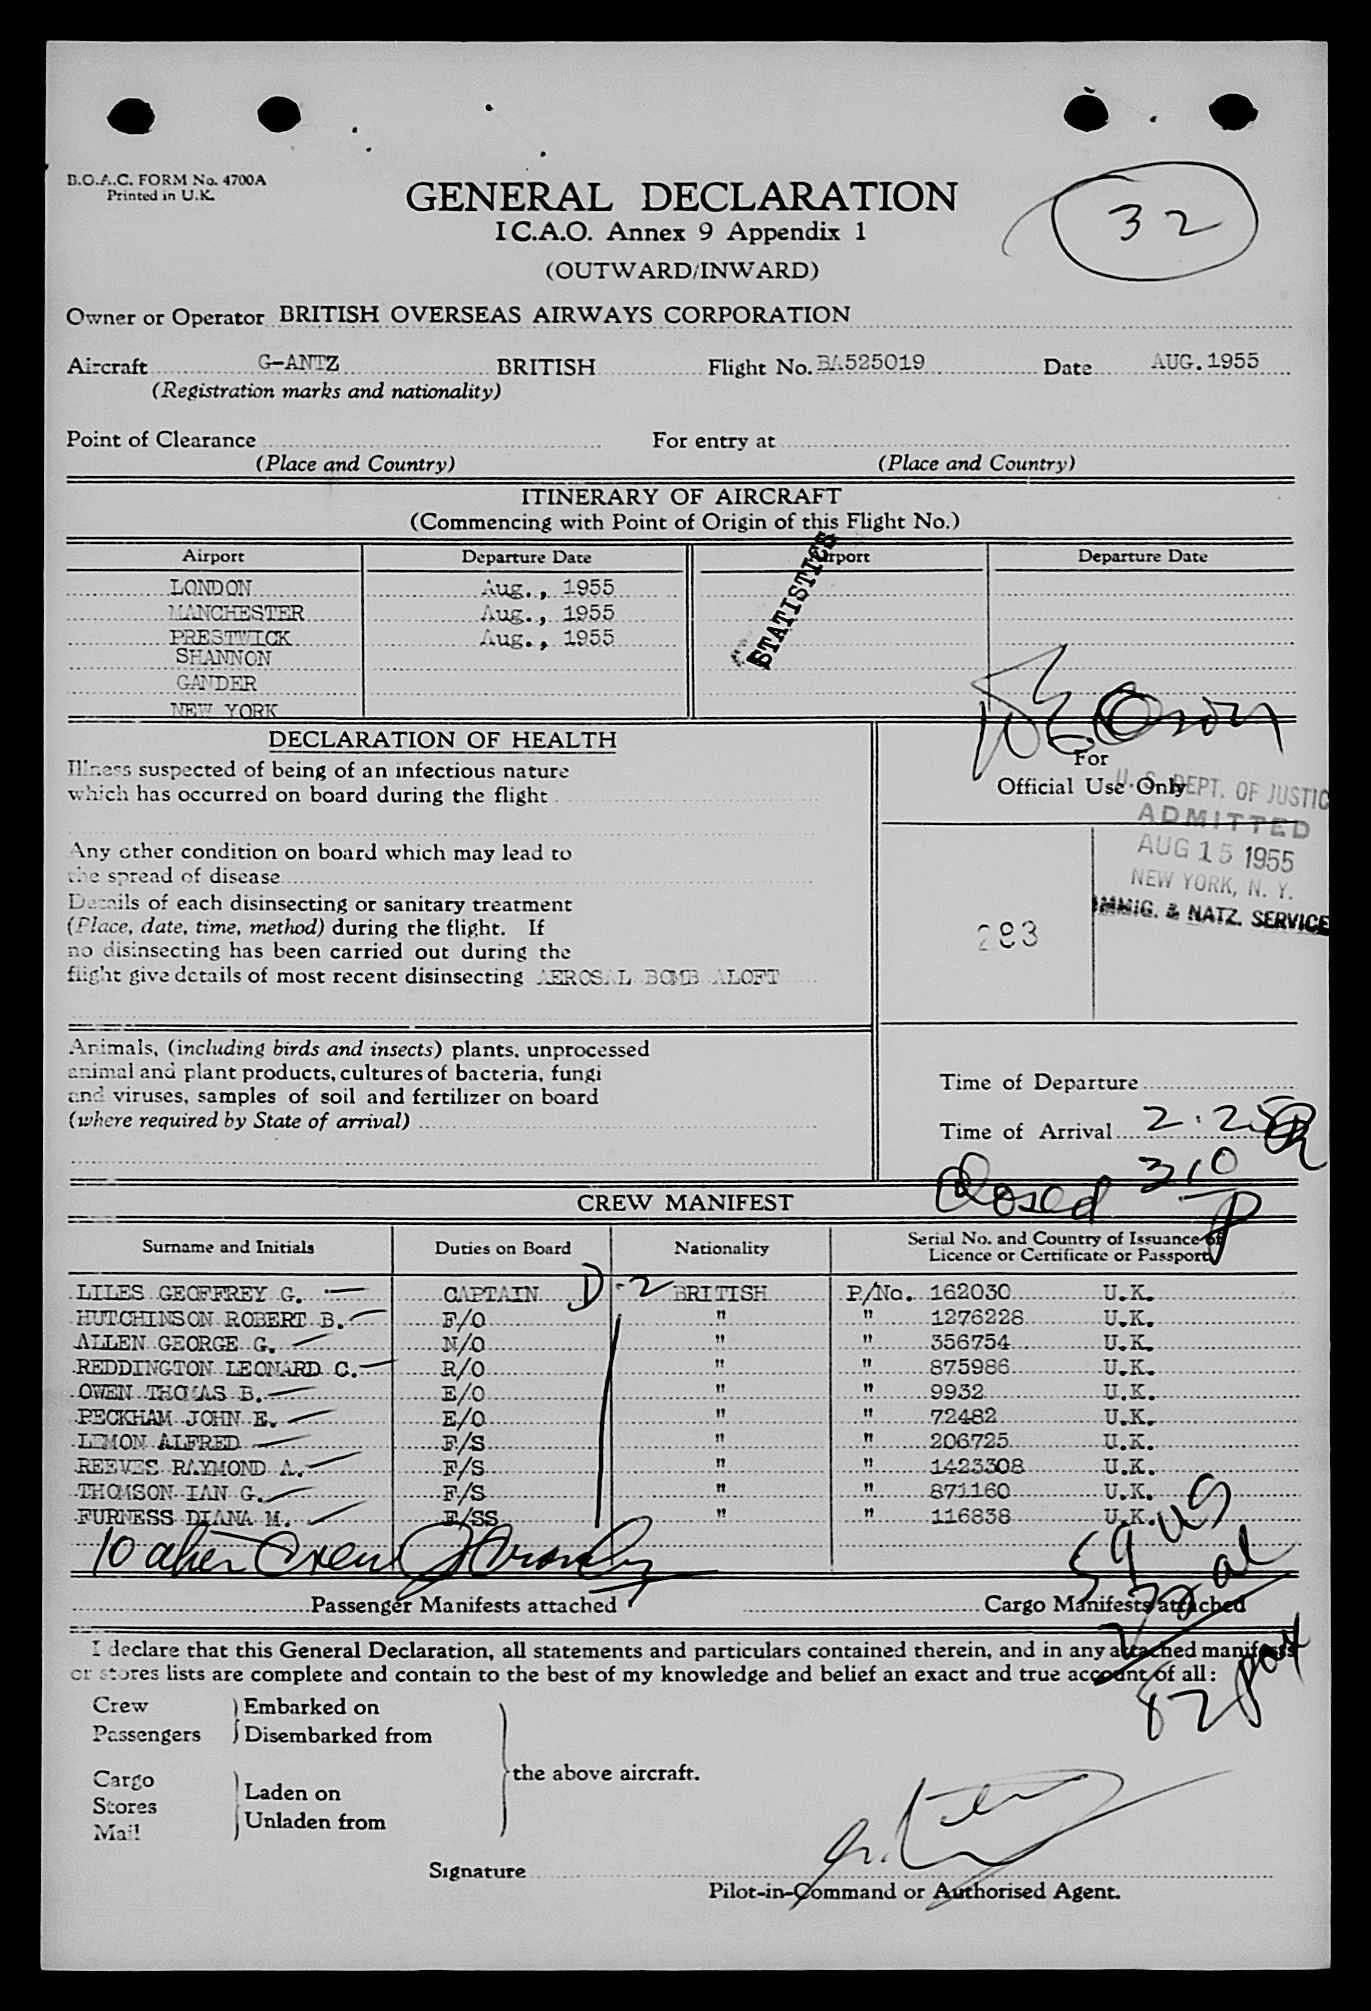 B.O.A.C. FORM No. 4700A
Printed in U.K.
GENERAL DECLARATION
I C.A.O. Annex 9 Appendix 1
(OUTWARD/INWARD)
32
Owner or Operator BRITISH OVERSEAS AIRWAYS CORPORATION
Aircraft G-ANTZ BRITISH Flight No. BA525019 Date AUG. 1955
(Registration marks and nationality)
Point of Clearance For entry at
(Place and Country) (Place and Country)
ITINERARY OF AIRCRAFT
(Commencing with Point of Origin of this Flight No.)
Airport Departure Date Airport Departure Date
LONDON Aug., 1955
MANCHESTER Aug., 1955
PRESTWICK Aug., 1955
SHANNON
GANDER
NEW YORK
STATISTICS
DECLARATION OF HEALTH
Illness suspected of being of an infectious nature
which has occurred on board during the flight
Any other condition on board which may lead to
the spread of disease
Details of each disinsecting or sanitary treatment
(Place, date, time, method) during the flight. If
no disinsecting has been carried out during the
flight give details of most recent disinsecting AEROSAL BOMB ALOFT
For
Official Use Only
U. S. DEPT. OF JUSTIC
ADMITTED
AUG 15 1955
NEW YORK, N. Y.
IMMIG. & NATZ. SERVICE
283
Animals, (including birds and insects) plants, unprocessed
animal and plant products, cultures of bacteria, fungi
and viruses, samples of soil and fertilizer on board
(where required by State of arrival)
Time of Departure
Time of Arrival 2:25
Closed 310
CREW MANIFEST
Surname and Initials Duties on Board Nationality Serial No. and Country of Issuance of
Licence or Certificate or Passport
LILES GEOFFREY G. CAPTAIN D-2 BRITISH P/No. 162030 U.K.
HUTCHINSON ROBERT B. F/O " " 1276228 U.K.
ALLEN GEORGE G. N/O " " 356754 U.K.
REDDINGTON LEONARD C. R/O " " 875986 U.K.
OWEN THOMAS B. E/O " " 9932 U.K.
PECKHAM JOHN E. E/O " " 72482 U.K.
LEMON ALFRED F/S " " 206725 U.K.
REEVES RAYMOND A. F/S " " 1423308 U.K.
THOMSON IAN G. F/S " " 871160 U.K.
FURNESS DIANA M. F/SS " " 116838 U.K.
10 alien Crew
59 US
al
Passenger Manifests attached Cargo Manifests attached
I declare that this General Declaration, all statements and particulars contained therein, and in any attached manifests
or stores lists are complete and contain to the best of my knowledge and belief an exact and true account of all:
82
Crew Embarked on
Passengers Disembarked from
the above aircraft.
Cargo Laden on
Stores
Mail Unladen from
Signature
Pilot-in-Command or Authorised Agent.